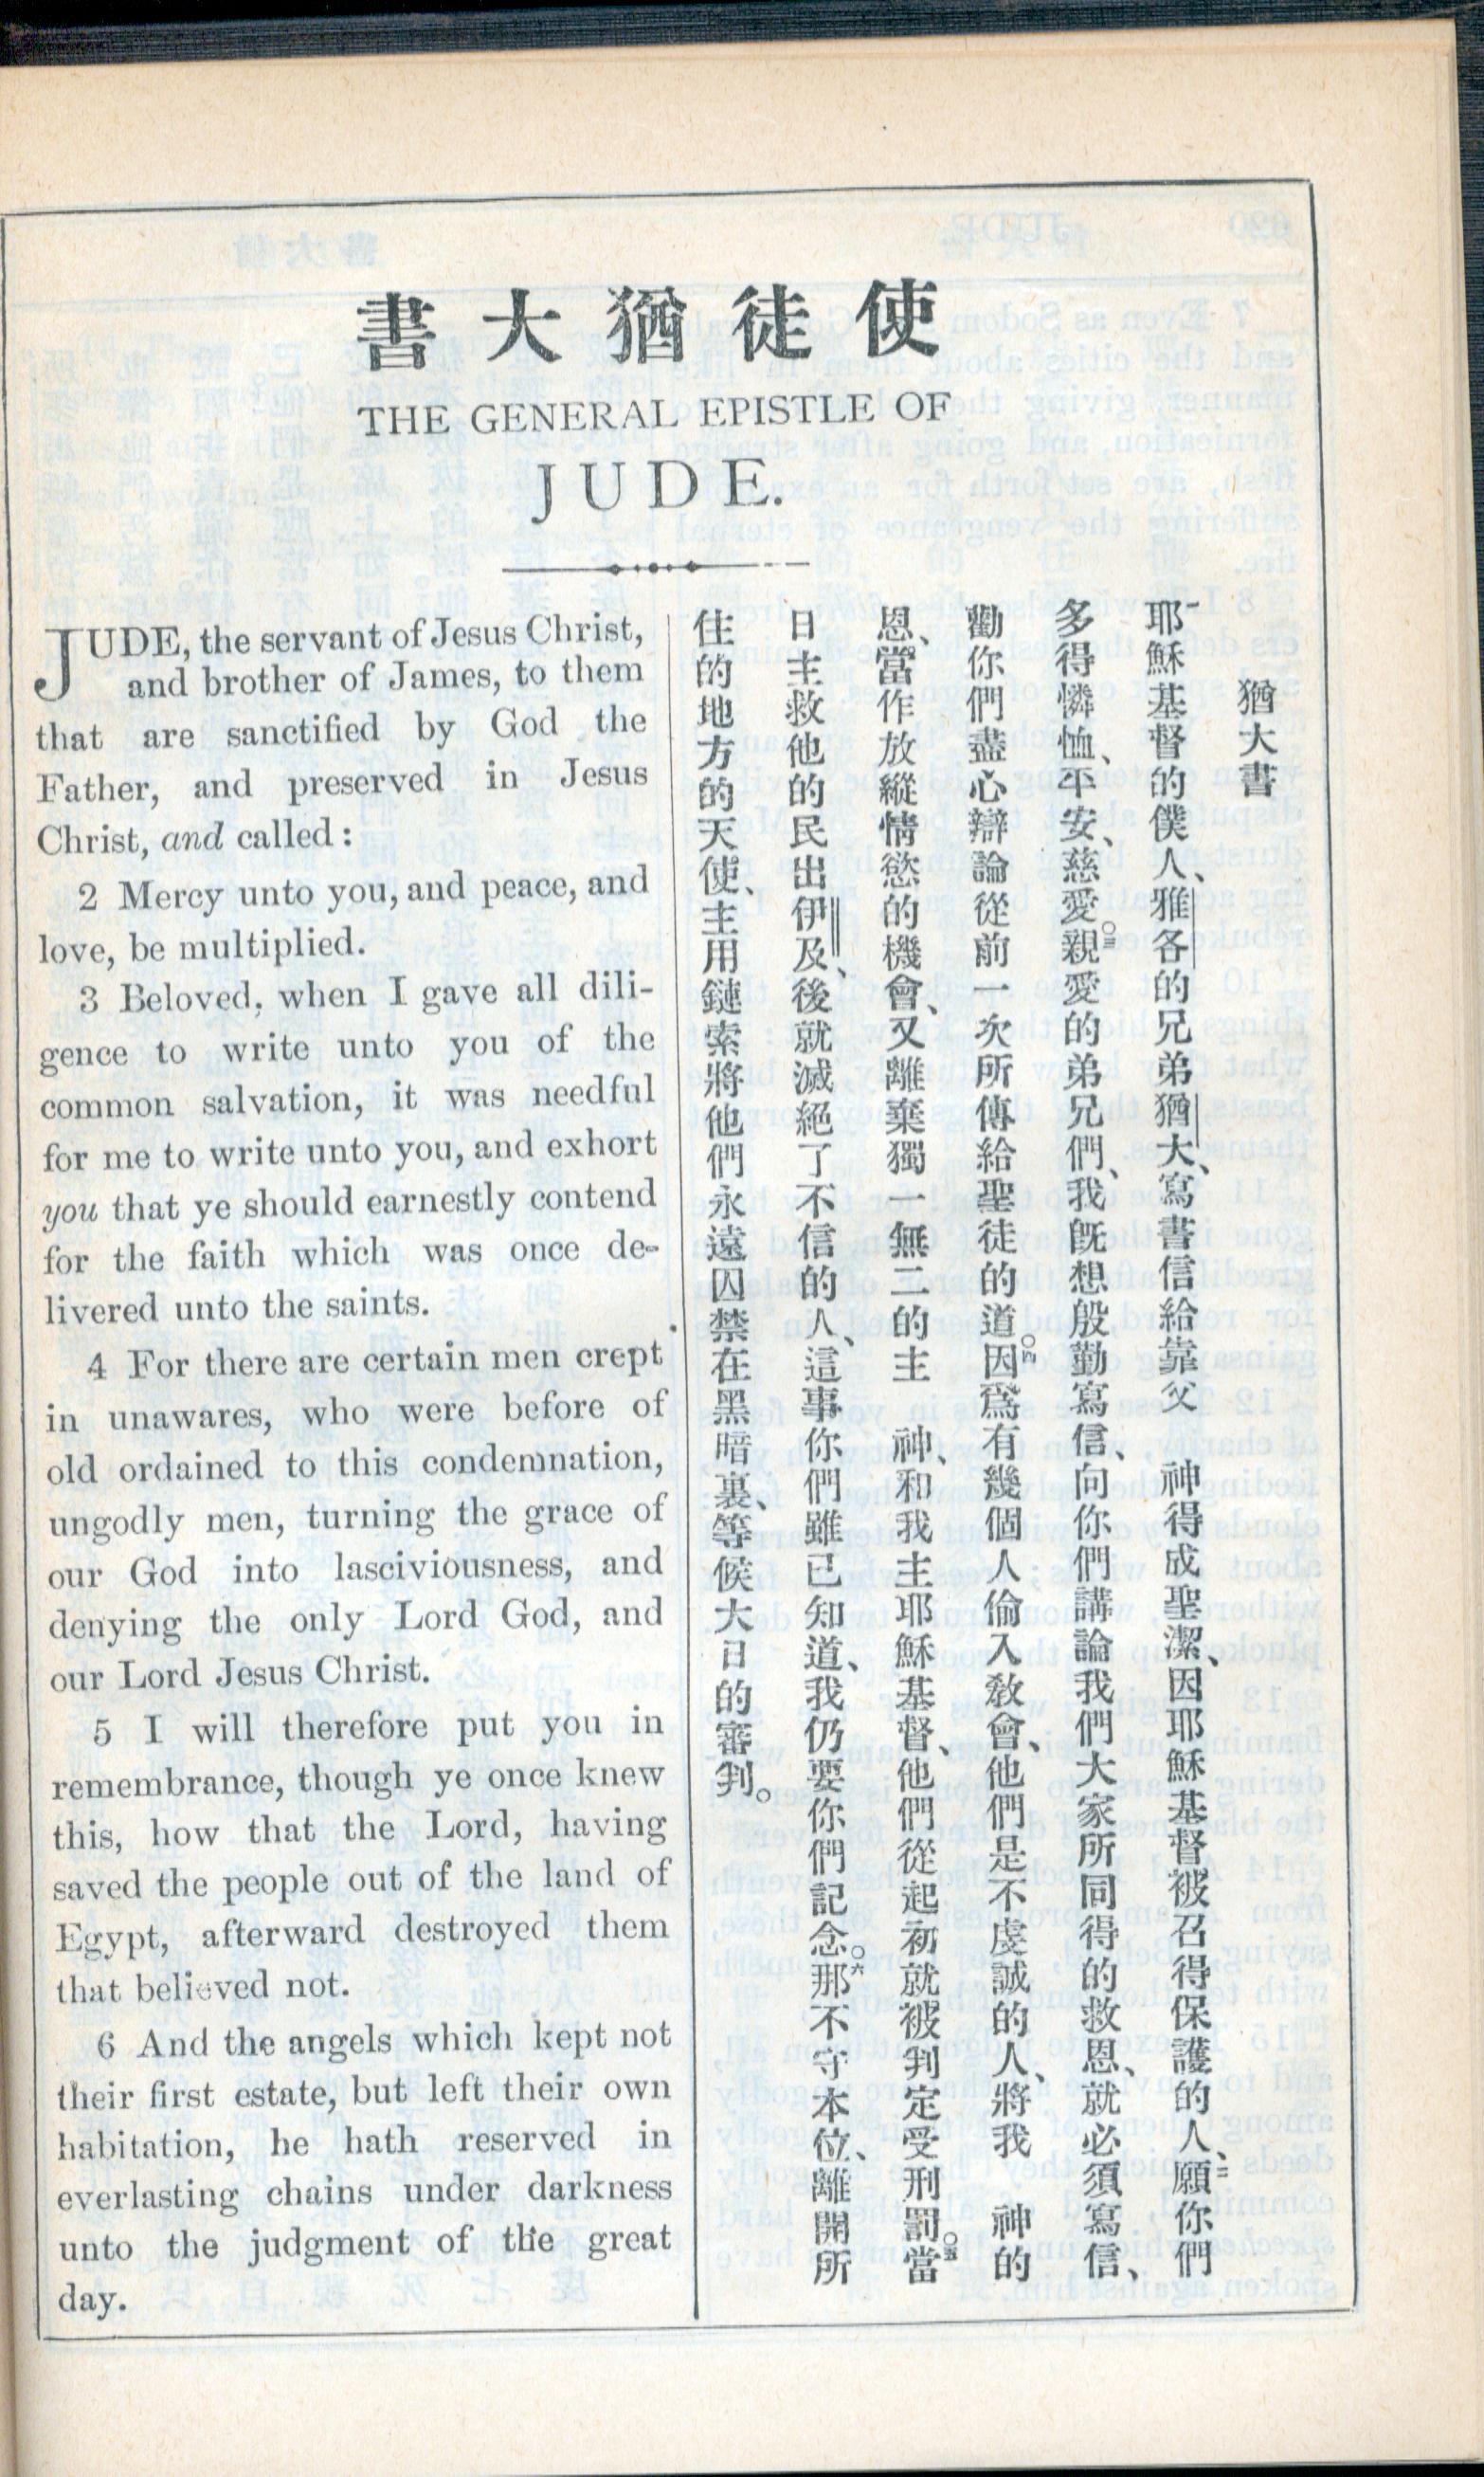 使徒猶大書
THE GENERAL EPISTLE OF
JUDE.
JUDE, the servant of Jesus Christ,
and brother of James, to them
that are sanctified by God the
Father, and preserved in Jesus
Christ, and called:
2 Mercy unto you, and peace, and
love, be multiplied.
3 Beloved, when I gave all dili-
gence to write unto you of the
common salvation, it was needful
for me to write unto you, and exhort
you that ye should earnestly contend
for the faith which was once de-
livered unto the saints.
4 For there are certain men crept
in unawares, who were before of
old ordained to this condemnation,
ungodly men, turning the grace of
our God into lasciviousness, and
denying the only Lord God, and
our Lord Jesus Christ.
5 I will therefore put you in
remembrance, though ye once knew
this, how that the Lord, having
saved the people out of the land of
Egypt, afterward destroyed them
that believed not.
6 And the angels which kept not
their first estate, but left their own
habitation, he hath reserved in
everlasting chains under darkness
unto the judgment of the great
day.
猶大書
耶穌基督的僕人、雅各的兄弟猶大、寫書信給靠父　神得成聖潔、因耶穌基督被召得保護的人、二願你們
多得憐恤、平安、慈愛。三親愛的弟兄們、我旣想殷勤寫信、向你們講論我們大家所同得的救恩、就必須寫信、
勸你們盡心辯論從前一次所傳給聖徒的道。四因爲有幾個人偷入敎會、他們是不虔誠的人、將我　神的
恩、當作放縱情慾的機會、又離棄獨一無二的主　神、和我主耶穌基督、他們從起初就被判定受刑罰。五當
日主救他的民出伊及、後就滅絕了不信的人、這事你們雖已知道、我仍要你們記念。六那不守本位、離開所
住的地方的天使、主用鏈索將他們永遠囚禁在黑暗裏、等候大日的審判。